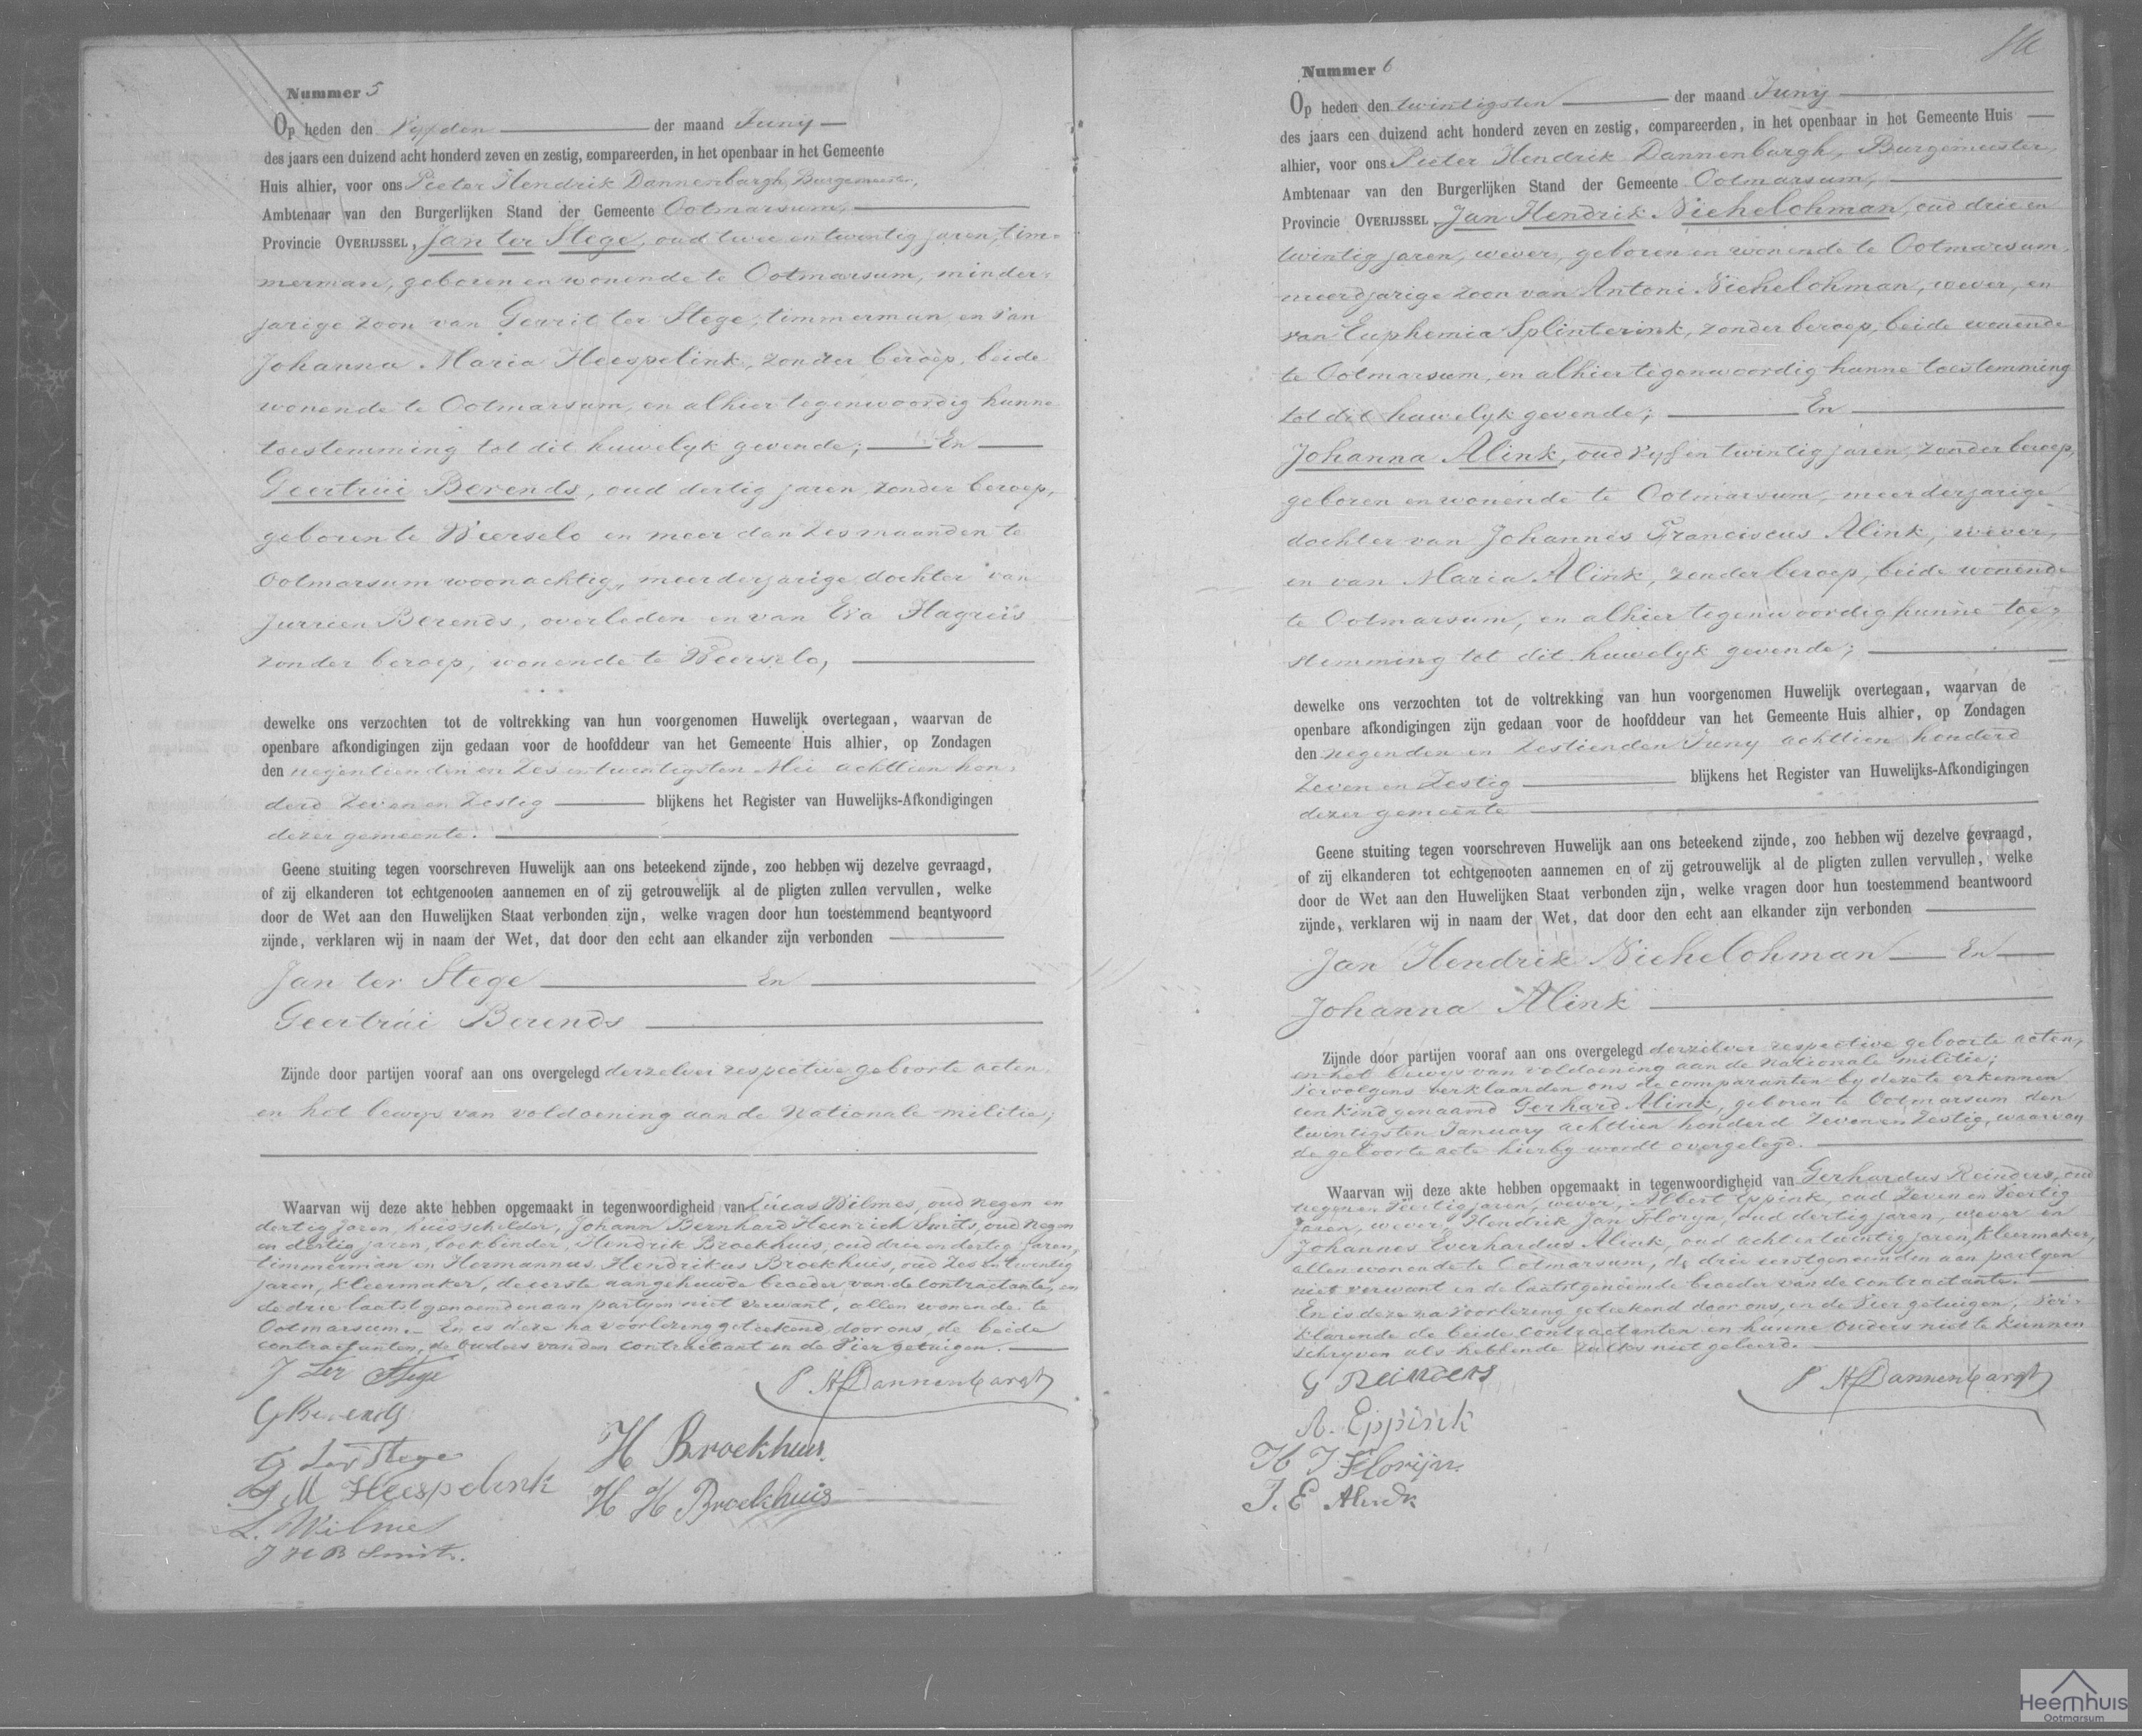 Nummer 5
Op heden den Vyfden der maand Juny
des jaars een duizend acht honderd zeven en zestig, compareerden, in het openbaar in het Gemeente
Huis alhier, voor ons Pieter Hendrik Dannenbargh, Burgemeester,
Ambtenaar van den Burgerlijken Stand der Gemeente Ootmarsum,
Provincie OVERIJSSEL, Jan ter Stege, oud twee en twintig jaren, tim-
merman, geboren en wonende te Ootmarsum, minder-
jarige zoon van Gerrit ter Stege, timmerman en van
Johanna Maria Heespelink, zonder beroep, beide
wonende te Ootmarsum, en alhier tegenwoordig hunne
toestemming tot dit huwelyk gevende; En
Geertrui Berends, oud dertig jaren, zonder beroep,
geboren te Weerselo en meer dan zes maanden te
Ootmarsum woonachtig, meerderjarige dochter van
Jurrien Berends, overleden en van Eva Hagreis
zonder beroep, wonende te Weerselo,
dewelke ons verzochten tot de voltrekking van hun voorgenomen Huwelijk overtegaan, waarvan de
openbare afkondigingen zijn gedaan voor de hoofddeur van het Gemeente Huis alhier, op Zondagen
den negentienden en zes en twintigsten Mei achttien hon-
derd zeven en zestig blijkens het Register van Huwelijks-Afkondigingen
dezer gemeente.
Geene stuiting tegen voorschreven Huwelijk aan ons beteekend zijnde, zoo hebben wij dezelve gevraagd,
of zij elkanderen tot echtgenooten aannemen en of zij getrouwelijk al de pligten zullen vervullen, welke
door de Wet aan den Huwelijken Staat verbonden zijn, welke vragen door hun toestemmend beantwoord
zijnde, verklaren wij in naam der Wet, dat door den echt aan elkander zijn verbonden
Jan ter Stege En
Geertrui Berends
Zijnde door partijen vooraf aan ons overgelegd derzelver respective geboorte acten
en het bewys van voldoening aan de Nationale militie;
Waarvan wij deze akte hebben opgemaakt in tegenwoordigheid van Lucas Wilmes, oud negen en
dertig jaren, huisschilder, Johann Bernhard Heinrich Smits, oud negen
en dertig jaren, boekbinder, Hendrik Broekhuis, oud drie en dertig jaren,
timmerman en Hermannus Hendrikus Broekhuis, oud zes en twintig
jaren, kleermaker, de eerste aangehuwde broeder van de Contractante, en
de drie laatstgenoemden aan partyen niet verwant, allen wonende te
Ootmarsum. En is deze na voorlezing geteekend door ons, de beide
contractanten, de ouders van den contractant en de vier getuigen.
J ter Stege
P H Dannenbargh
G Berends
G ter Stege
H Broekhuis.
J M Heespelink
H H Broekhuis
L. Wilmes
J H B Smits.
Nummer 6
Op heden den twintigsten der maand Juny
des jaars een duizend acht honderd zeven en zestig, compareerden, in het openbaar in het Gemeente Huis
alhier, voor ons Pieter Hendrik Dannenbargh, Burgemeester,
Ambtenaar van den Burgerlijken Stand der Gemeente Ootmarsum,
Provincie OVERIJSSEL, Jan Hendrik Niehelohman, oud drie en
twintig jaren, wever, geboren en wonende te Ootmarsum,
meerdjarige zoon van Antoni Niehelohman, wever, en
van Euphemia Splinterink, zonder beroep, beide wonende
te Ootmarsum, en alhier tegenwoordig hunne toestemming
tot dit huwelyk gevende; En
Johanna Alink, oud vyf en twintig jaren, zonder beroep,
geboren en wonende te Ootmarsum, meerderjarige
dochter van Johannes Franciscus Alink, wever,
en van Maria Alink, zonder beroep, beide wonende
te Ootmarsum, en alhier tegenwoordig hunne toe-
stemming tot dit huwelyk gevende;
dewelke ons verzochten tot de voltrekking van hun voorgenomen Huwelijk overtegaan, waarvan de
openbare afkondigingen zijn gedaan voor de hoofddeur van het Gemeente Huis alhier, op Zondagen
den negenden en zestienden Juny achttien honderd
zeven en zestig blijkens het Register van Huwelijks-Afkondigingen
dezer gemeente
Geene stuiting tegen voorschreven Huwelijk aan ons beteekend zijnde, zoo hebben wij dezelve gevraagd,
of zij elkanderen tot echtgenooten aannemen en of zij getrouwelijk al de pligten zullen vervullen, welke
door de Wet aan den Huwelijken Staat verbonden zijn, welke vragen door hun toestemmend beantwoord
zijnde, verklaren wij in naam der Wet, dat door den echt aan elkander zijn verbonden
Jan Hendrik Niehelohman En
Johanna Alink
Zijnde door partijen vooraf aan ons overgelegd derzelver respective geboorte acten,
en het bewys van voldoening aan de Nationale militie;
Vervolgens verklaarden ons de comparanten by deze te erkennen
een kind genaamd Gerhard Alink, geboren te Ootmarsum den
twintigsten January achttien honderd zeven en zestig, waarvan
de geboorte acte hierby wordt overgelegd.
Waarvan wij deze akte hebben opgemaakt in tegenwoordigheid van Gerhardus Reinders, oud
negen en veertig jaren, wever, Albert Eppink, oud zeven en veertig
jaren, wever, Hendrik Jan Floryn, oud dertig jaren, wever en
Johannes Everhardus Alink, oud acht en twintig jaren, kleermaker,
allen wonende te Ootmarsum, de drie eerstgenoemden aan partyen
niet verwant en de laatstgenoemde broeder van de contractante.
En is deze na voorlezing geteekend door ons, en de vier getuigen, ver-
klarende de beide contractanten en hunne ouders niet te kunnen
schryven als hebbende zulks niet geleerd.
G Reinders
P H Dannenbargh
A. Eppink
H J Florijn.
J. E Alink
Heemhuis
Ootmarsum